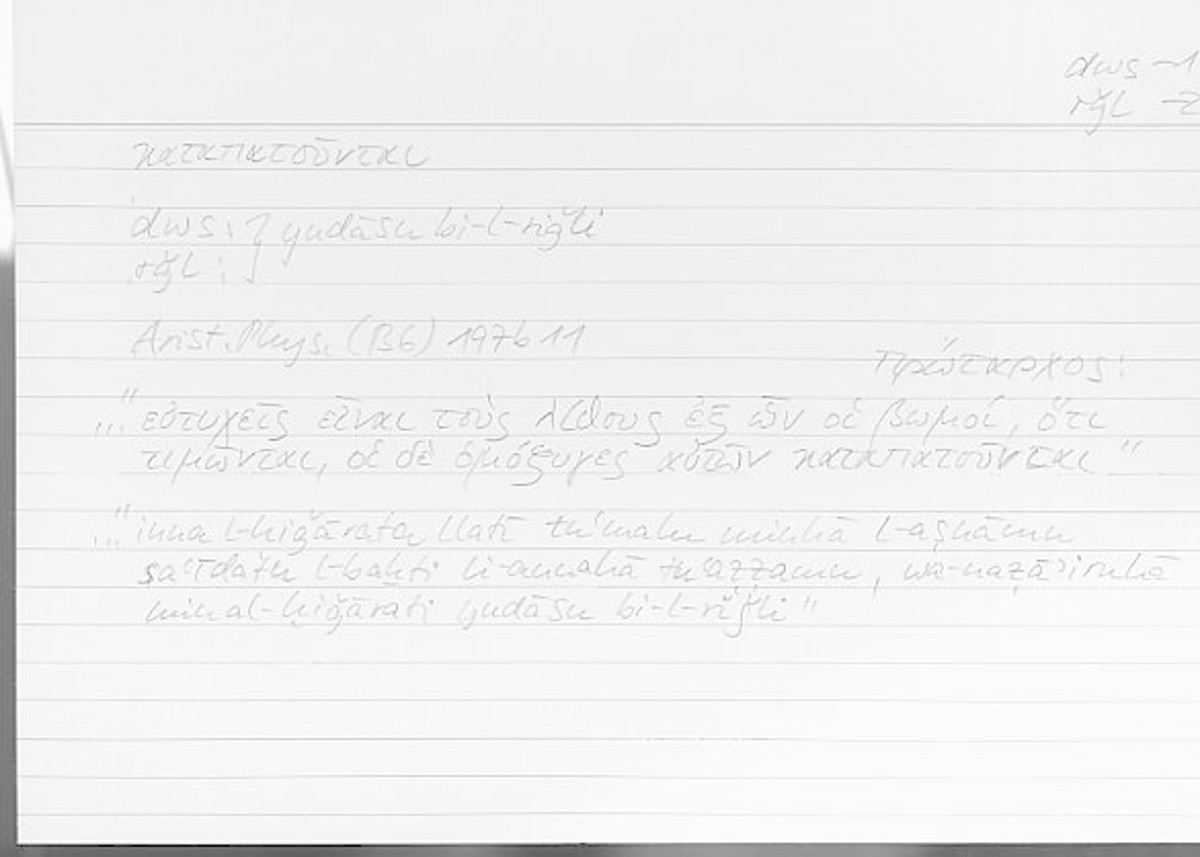 dws –1
rǧl –2
καταπατοῦνται
dws : } yudāsu bi-l-riǧli
rǧl : }
Arist. Phys. (B6) 197b11
Πρώταρχος:
..." εὐτυχεῖς εἶναι τοὺς λίθους ἐξ ὧν οἱ βωμοί, ὅτι
τιμῶνται, οἱ δὲ ὁμόζυγες αὐτῶν καταπατοῦνται"
..." inna l-ḥiǧārata llatī tuʿmalu minhā l-aṣnāmu
saʿīdatu l-baḫti li-annahā tuʿaẓẓamu, wa-naẓāʾiruhā
mina l-ḥiǧārati yudāsu bi-l-riǧli"